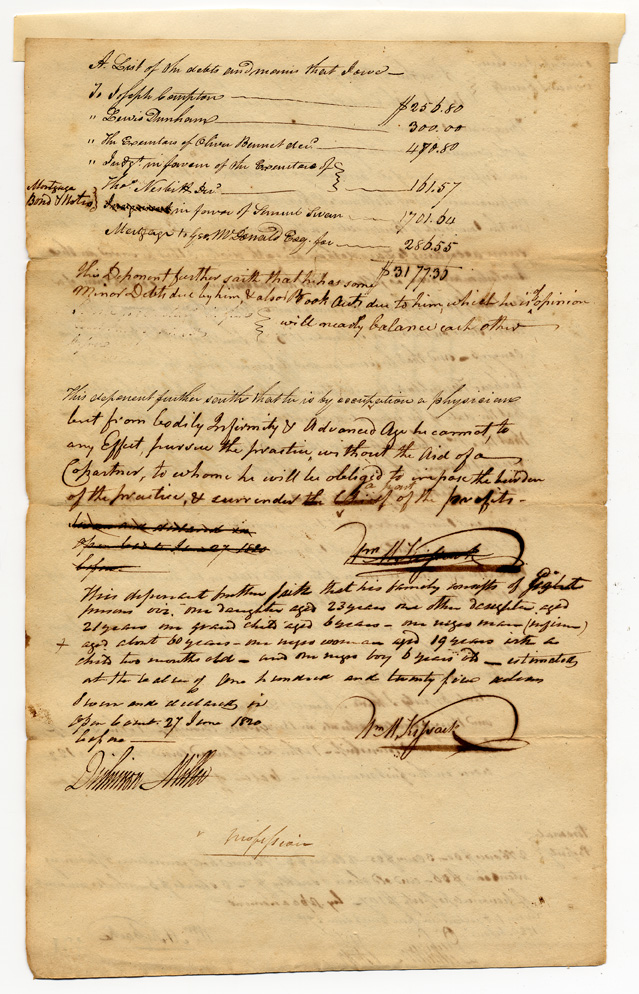 A List of the debts and monies that I owe —
To Joseph Compton — $256.80
" Lewis Dunham — 300.00
" The Executors of Oliver Bennet decd. — 470.80
" Judgt. in favour of the Executors of
Thos. Nesbitt decd. — 161.57
Mortgage
Bond & Notes
in favour of Samuel Swan — 1701.64
Mortgage to Geo. McDonald Esq. for — 286.55
$3177.35
This Deponent further saith that he has some
Minor Debts due by him, & also Book Acts due to him, which he is of opinion
will nearly balance each other
This deponent further saith that he is by occupation a physician
but from bodily Infirmity & Advanced Age he cannot, to
any Effect, pursue the practice, without the Aid of a
Copartner, to whom he will be obliged to impose the burden
of the practice, & surrender a part of the profits -
Sworn and declared in
open Court June 27 1820
before
Wm. McKissack
This deponent further saith that his family consists of Eight
persons viz. one daughter aged 23 years one other daughter aged
21 years one grand child aged 6 years - one negro man (infirm)
+ aged about 60 years - one negro woman aged 19 years with a
child two months old - and one negro boy 6 years old - estimated
at the value of One hundred and twenty five dollars
Sworn and declared in
open Court. 27 June 1820
before —
Wm. McKissack
Dickinson Miller